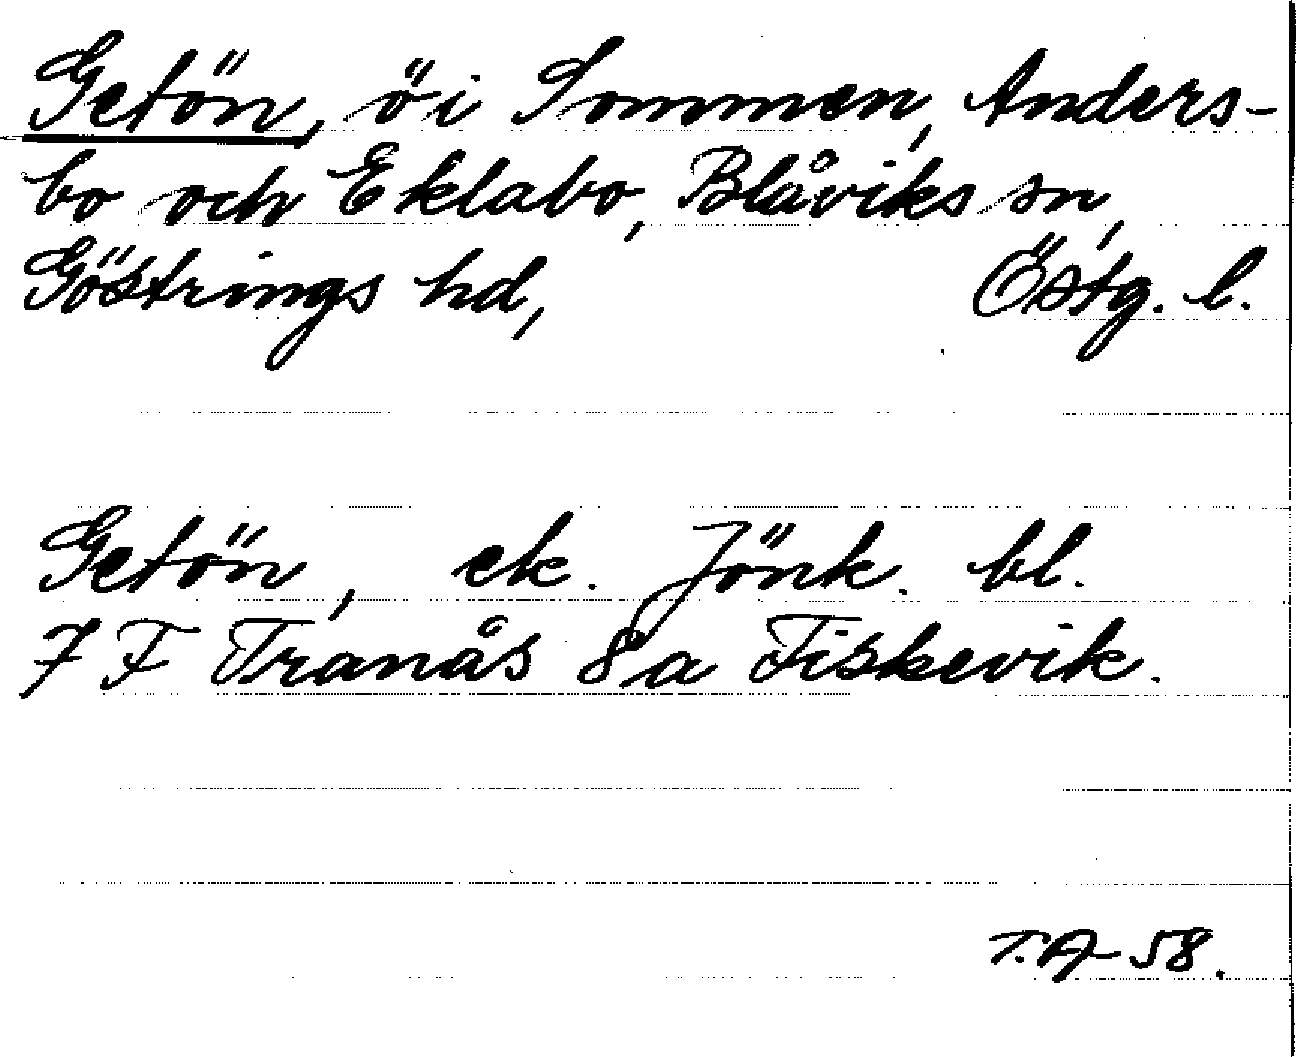 Getön, ö i Sommen, Anders-
bo och Eklabo, Blåviks sn,
Göstrings hd, Östg. l.
Getön, ek. Jönk. bl.
7 F Tranås 8 a Fiskevik.
T. A-58.